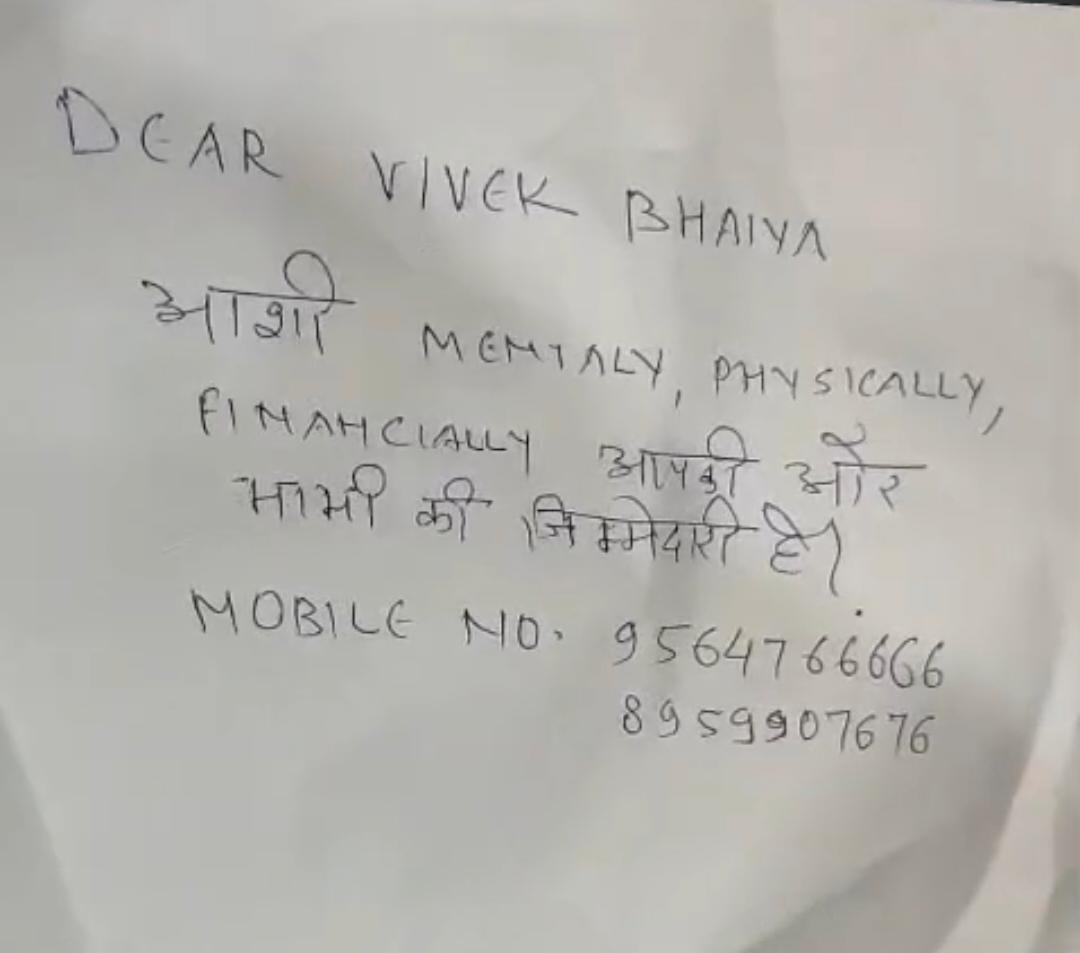 DEAR VIVEK BHAIYA
आशी MENTALY, PHYSICALLY,
FINANCIALLY आपकी और
भाभी की जिम्मेदारी है।
MOBILE NO. 9564766666
8959907676